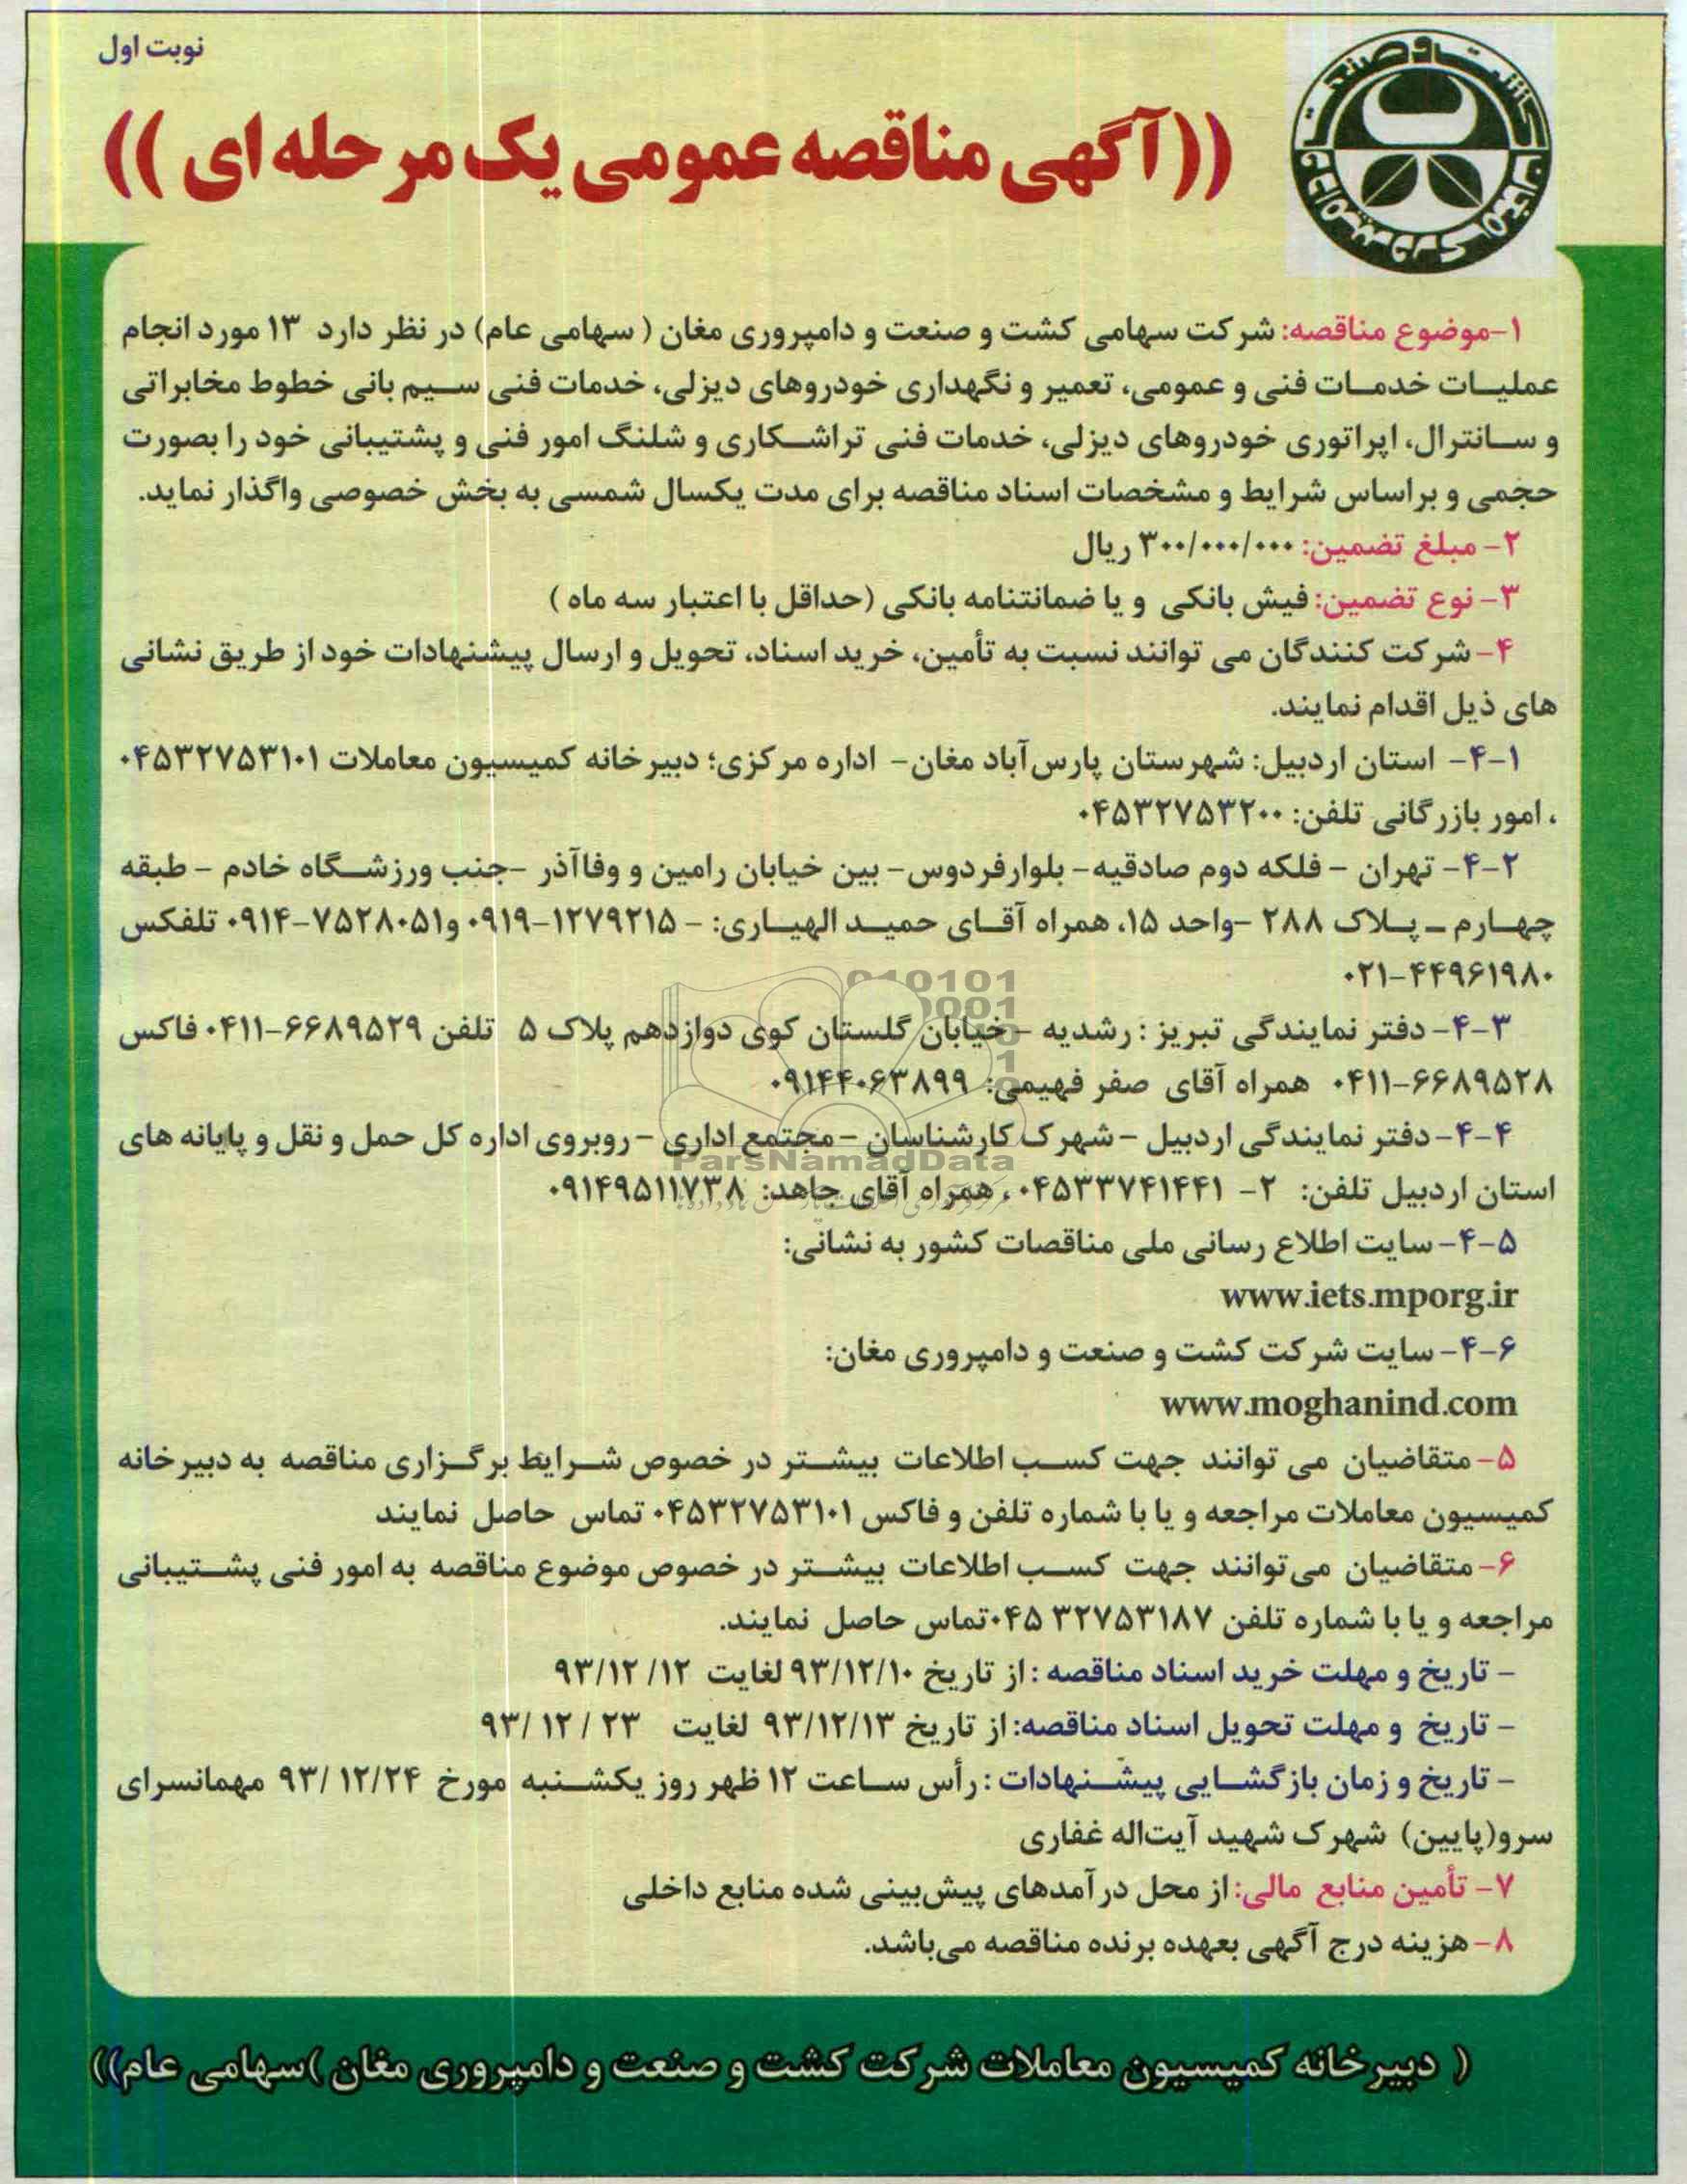 نوبت اول
کشت و صنعت و دامپروری مغان
((آگهی مناقصه عمومی یک مرحله ای ))
۱-موضوع مناقصه: شرکت سهامی کشت و صنعت و دامپروری مغان ( سهامی عام) در نظر دارد ۱۳ مورد انجام
عملیات خدمات فنی و عمومی، تعمیر و نگهداری خودروهای دیزلی، خدمات فنی سیم بانی خطوط مخابراتی
و سانترال، اپراتوری خودروهای دیزلی، خدمات فنی تراشکاری و شلنگ امور فنی و پشتیبانی خود را بصورت
حجمی و براساس شرایط و مشخصات اسناد مناقصه برای مدت یکسال شمسی به بخش خصوصی واگذار نماید.
۲- مبلغ تضمین: ۳۰۰/۰۰۰/۰۰۰ ریال
۳- نوع تضمین: فیش بانکی و یا ضمانتنامه بانکی (حداقل با اعتبار سه ماه )
۴- شرکت کنندگان می توانند نسبت به تأمین، خرید اسناد، تحویل و ارسال پیشنهادات خود از طریق نشانی
های ذیل اقدام نمایند.
۴-۱- استان اردبیل: شهرستان پارس‌آباد مغان- اداره مرکزی؛ دبیرخانه کمیسیون معاملات ۰۴۵۳۲۷۵۳۱۰۱
، امور بازرگانی تلفن: ۰۴۵۳۲۷۵۳۲۰۰
۴-۲- تهران - فلکه دوم صادقیه- بلوارفردوس- بین خیابان رامین و وفاآذر -جنب ورزشگاه خادم - طبقه
چهارم – پلاک ۲۸۸ -واحد ۱۵، همراه آقای حمید الهیاری: - ۱۲۷۹۲۱۵-۰۹۱۹ و۷۵۲۸۰۵۱-۰۹۱۴ تلفکس
۰۲۱-۴۴۹۶۱۹۸۰
۴-۳- دفتر نمایندگی تبریز : رشدیه - خیابان گلستان کوی دوازدهم پلاک ۵ تلفن ۶۶۸۹۵۲۹-۰۴۱۱ فاکس
۶۶۸۹۵۲۸-۰۴۱۱ همراه آقای صفر فهیمی: ۰۹۱۴۴۰۶۳۸۹۹
۴-۴- دفتر نمایندگی اردبیل - شهرک کارشناسان - مجتمع اداری - روبروی اداره کل حمل و نقل و پایانه های
استان اردبیل تلفن: ۲- ۰۴۵۳۳۷۴۱۴۴۱، همراه آقای جاهد: ۰۹۱۴۹۵۱۱۷۳۸
ParsNamadData
۴-۵- سایت اطلاع رسانی ملی مناقصات کشور به نشانی:
www.iets.mporg.ir
۴-۶- سایت شرکت کشت و صنعت و دامپروری مغان:
www.moghanind.com
۵- متقاضیان می توانند جهت کسب اطلاعات بیشتر در خصوص شرایط برگزاری مناقصه به دبیرخانه
کمیسیون معاملات مراجعه و یا با شماره تلفن و فاکس ۰۴۵۳۲۷۵۳۱۰۱ تماس حاصل نمایند
۶- متقاضیان می‌توانند جهت کسب اطلاعات بیشتر در خصوص موضوع مناقصه به امور فنی پشتیبانی
مراجعه و یا با شماره تلفن ۳۲۷۵۳۱۸۷ ۰۴۵تماس حاصل نمایند.
- تاریخ و مهلت خرید اسناد مناقصه : از تاریخ ۹۳/۱۲/۱۰ لغایت ۹۳/۱۲/ ۱۲
- تاریخ و مهلت تحویل اسناد مناقصه: از تاریخ ۹۳/۱۲/۱۳ لغایت ۲۳ / ۱۲ /۹۳
- تاریخ و زمان بازگشایی پیشنهادات : رأس ساعت ۱۲ ظهر روز یکشنبه مورخ ۱۲/۲۴ /۹۳ مهمانسرای
سرو(پایین) شهرک شهید آیت‌اله غفاری
۷- تأمین منابع مالی: از محل درآمدهای پیش‌بینی شده منابع داخلی
۸- هزینه درج آگهی بعهده برنده مناقصه می‌باشد.
( دبیرخانه کمیسیون معاملات شرکت کشت و صنعت و دامپروری مغان )سهامی عام))